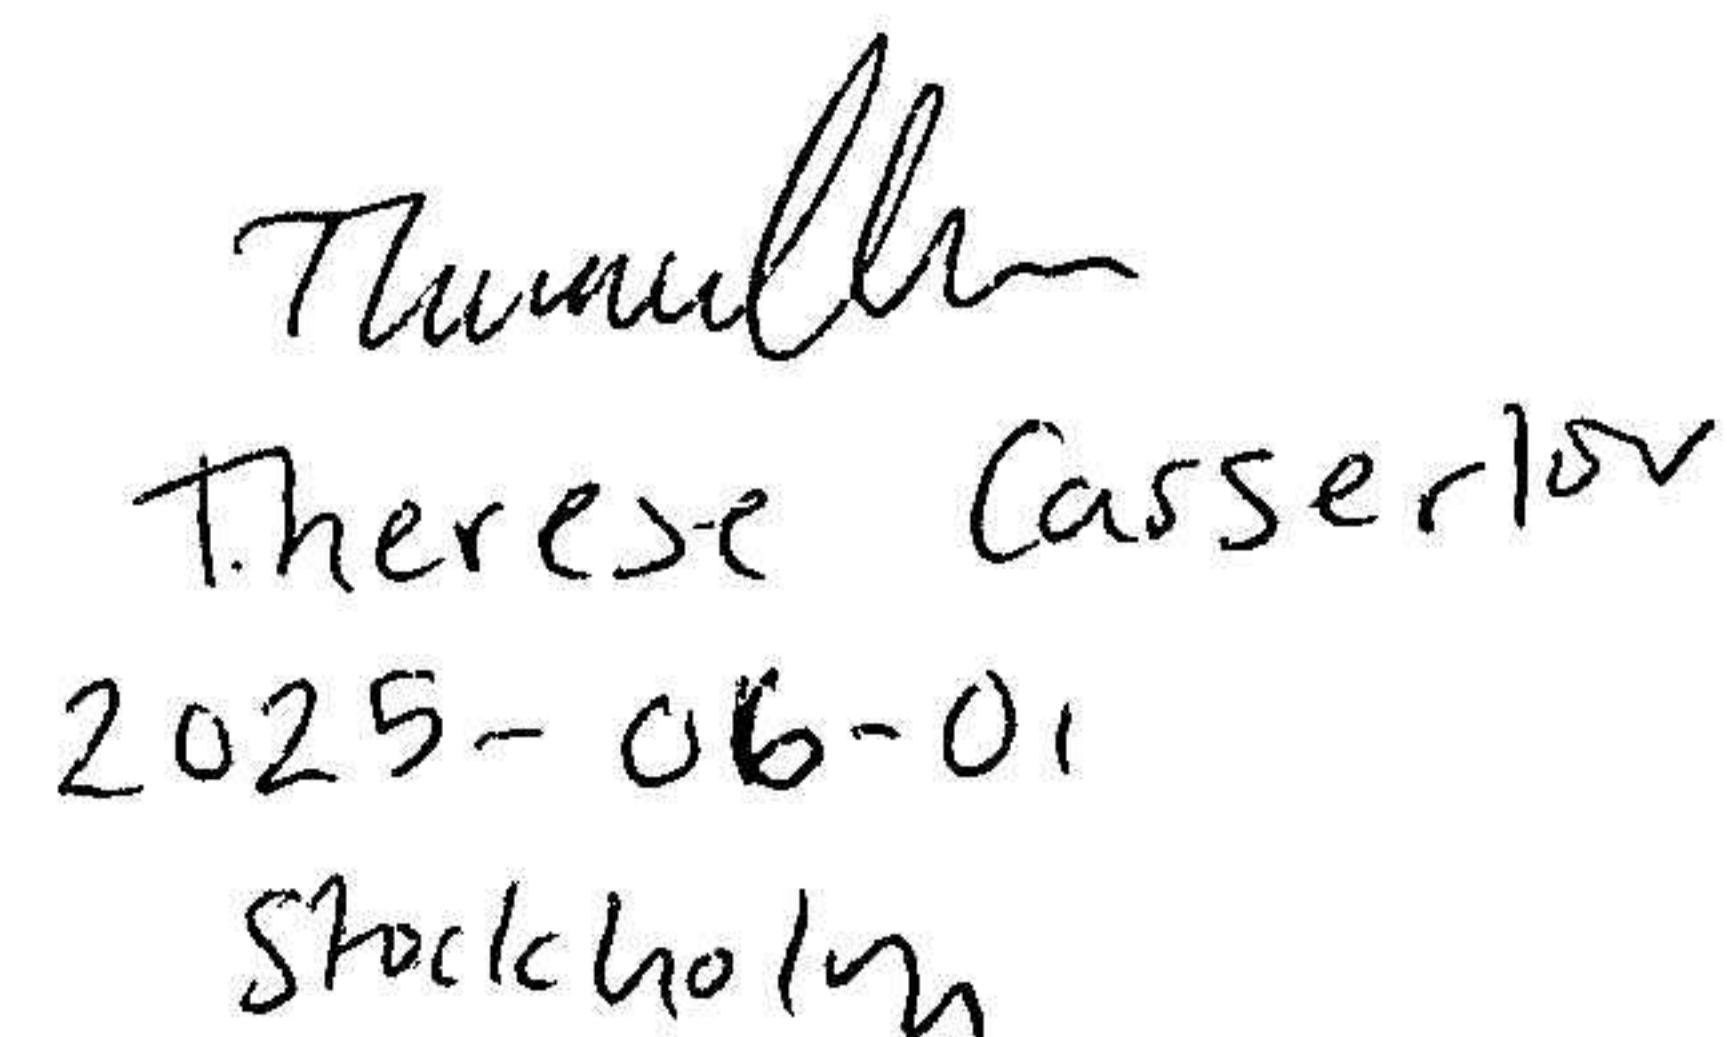 Therese Casserlöv
2025-06-01
Stockholm